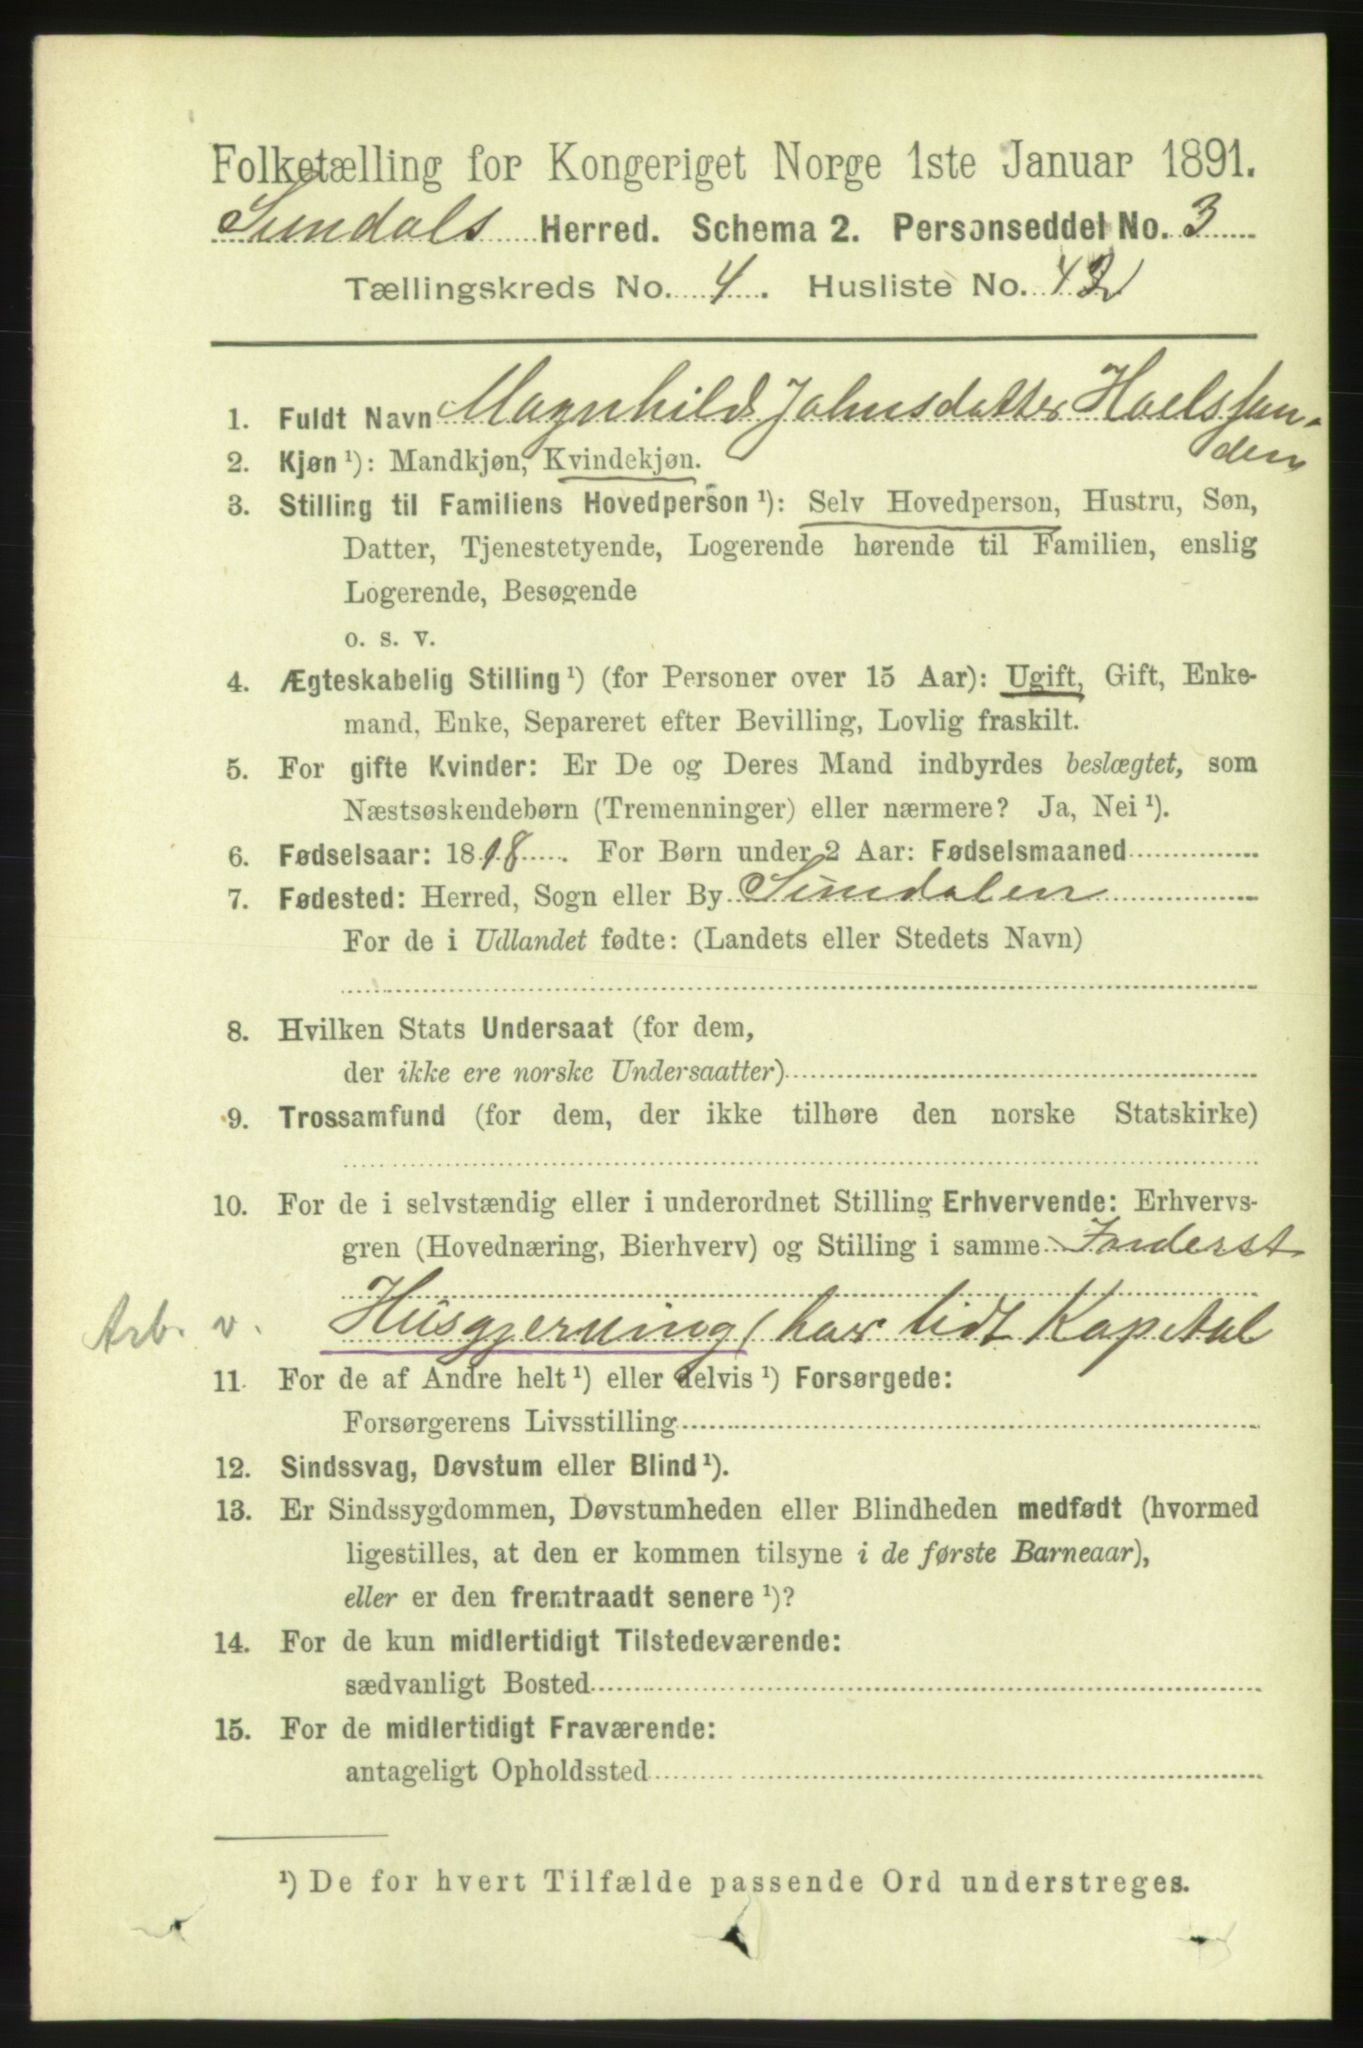 Folketælling for Kongeriget Norge 1ste Januar 1891.
Sundals Herred. Schema 2. Personseddel No. 3
Tællingskreds No. 4. Husliste No. 42
1. Fuldt Navn Magnhild Johnsdatter Hoelssan-
den
2. Kjøn ¹): Mandkjøn, Kvindekjøn.
3. Stilling til Familiens Hovedperson ¹): Selv Hovedperson, Hustru, Søn,
Datter, Tjenestetyende, Logerende hørende til Familien, enslig
Logerende, Besøgende
o. s. v.
4. Ægteskabelig Stilling ¹) (for Personer over 15 Aar): Ugift, Gift, Enke-
mand, Enke, Separeret efter Bevilling, Lovlig fraskilt.
5. For gifte Kvinder: Er De og Deres Mand indbyrdes beslægtet, som
Næstsøskendebørn (Tremenninger) eller nærmere? Ja, Nei ¹).
6. Fødselsaar: 1818. For Børn under 2 Aar: Fødselsmaaned
7. Fødested: Herred, Sogn eller By Sundalen
For de i Udlandet fødte: (Landets eller Stedets Navn)
8. Hvilken Stats Undersaat (for dem,
der ikke ere norske Undersaatter)
9. Trossamfund (for dem, der ikke tilhøre den norske Statskirke)
10. For de i selvstændig eller i underordnet Stilling Erhvervende: Erhvervs-
gren (Hovednæring, Bierhverv) og Stilling i samme Inderst
Arb. v. Husgjerning, har lidt Kapital
11. For de af Andre helt ¹) eller delvis ¹) Forsørgede:
Forsørgerens Livsstilling
12. Sindssvag, Døvstum eller Blind ¹).
13. Er Sindssygdommen, Døvstumheden eller Blindheden medfødt (hvormed
ligestilles, at den er kommen tilsyne i de første Barneaar),
eller er den fremtraadt senere ¹)?
14. For de kun midlertidigt Tilstedeværende:
sædvanligt Bosted
15. For de midlertidigt Fraværende:
antageligt Opholdssted
¹) De for hvert Tilfælde passende Ord understreges.